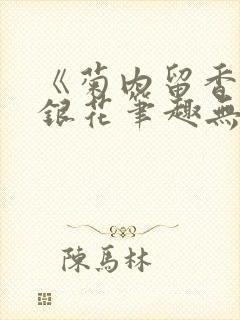 《菊内留香
銀花筆趣無
陳馬林